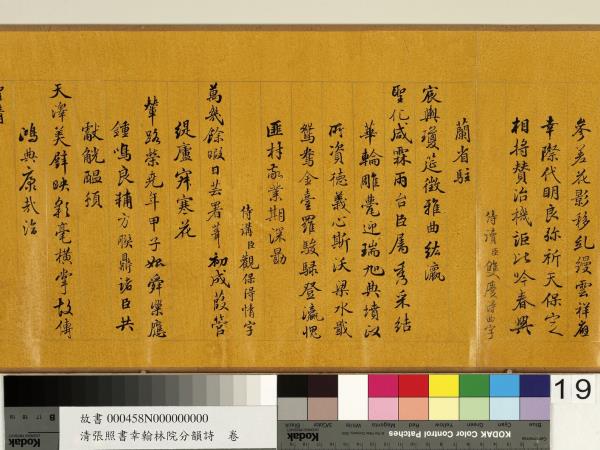 參差花影移糺縵雲祥
幸際代明良弥祈天保定
相將贊治機詎比吟春興
侍讀臣雙慶得曲字
蘭省駐
宸輿瓊筵徵雅曲紘瀛
聖化咸霖雨台臣屬秀采結
華輪雕甍迎瑞旭典墳以
所資德義心斯沃梁水戢
鴛鴦金臺羅駿騄登瀛愧
匪材敬業期深勖
侍講臣觀保得情字
萬幾餘暇日芸署葺初成葭管
緹廬寒花
輦路榮堯年甲子始舜樂應
鍾鳴良輔方膺鼎諸臣共
獻觥醞頒
天澤美映彩毫橫掌故傳
鴻典康哉治
19
故書 000458N000000000
清張照書幸翰林院分韻詩 卷
Kodak
KODAK Color Control Patches
Blue
Cyan
Green
Yellow
Red
Magenta
White
3/Color
Black